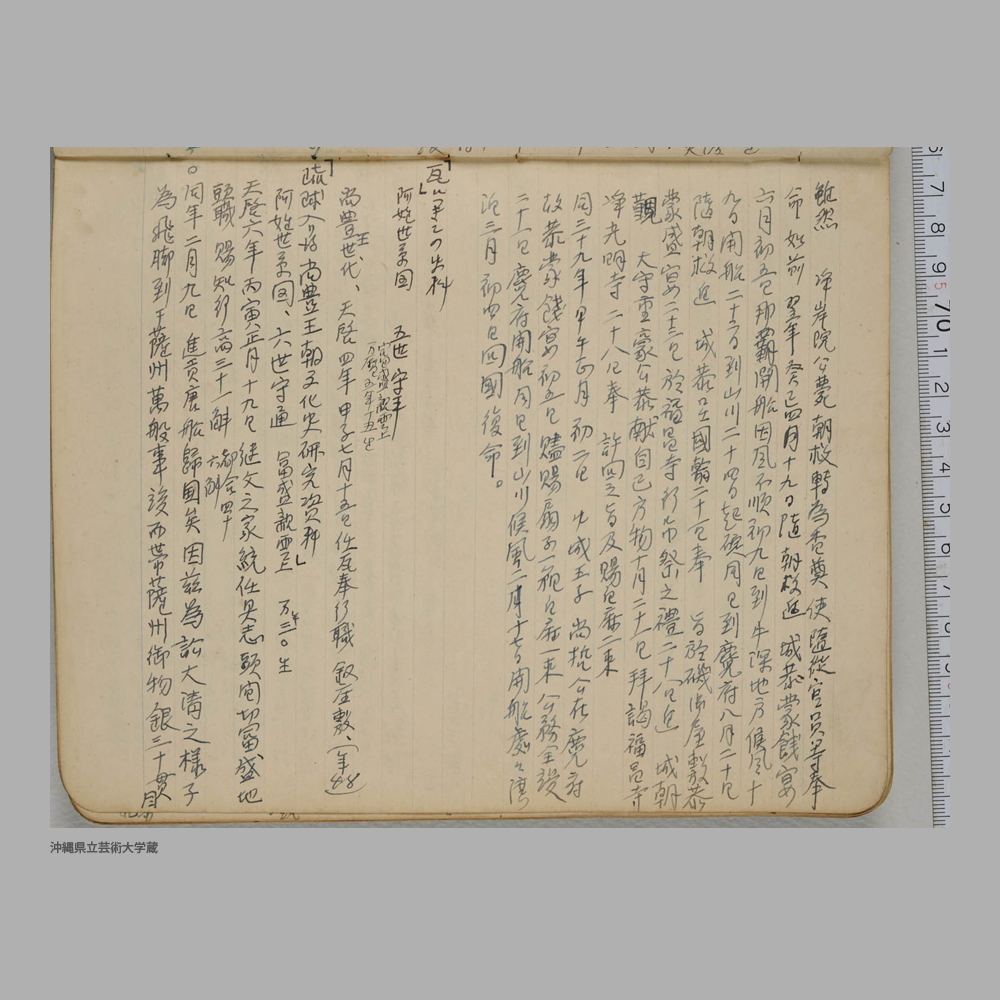 雖然 浄岸院公薨 朝救轉為香奠使 隨從官員等奉
命如前 翌年癸巳四月十九日隨 朝救進 城恭蒙餞宴
六月初五日那覇開船因風不順初九日到牛深地方候風十
九日開船二十三日到山川二十四日起碇同日到麑府八月二十日
隨朝救進 城恭呈國翰二十一日奉 旨於磯御屋敷恭
蒙盛宴二十三日於福昌寺行巾祭之禮二十八日進 城朝
覲 太守重豪公恭献自己方物十月二十一日拜謁福昌寺
浄光明寺二十八日奉 許回之旨及賜白麻二束
同三十九年甲午正月初二日 中城王子 尚哲公在麑府
故恭蒙餞宴初五日贐賜扇子一箱白麻一束公務全竣
二十一日麑府開船同日到山川候風二月十七日開船處々灣
泊三月初四日回國復命。
「瓦に関しての史料
阿姓世系図 五世守年 富盛親雲上
万暦五年丁丑生
尚豊王世代、天啓四年甲子七月十五日任瓦奉行職 叙座敷、(年48)
「琉球入后 尚豊王朝文化史研究資料」
阿姓世系図、六世守通 富盛親雲上 万暦三〇年生
天啓六年丙寅正月十九日継父之家統任具志頭間切富盛地
頭職 賜知行高三十斛 都合四十六斛
〇同年二月九日 進貢唐船歸國矣因茲為訟大清之様子
為飛脚到于薩州萬般事竣而世帯薩州御物銀三十貫目
沖縄県立芸術大学蔵